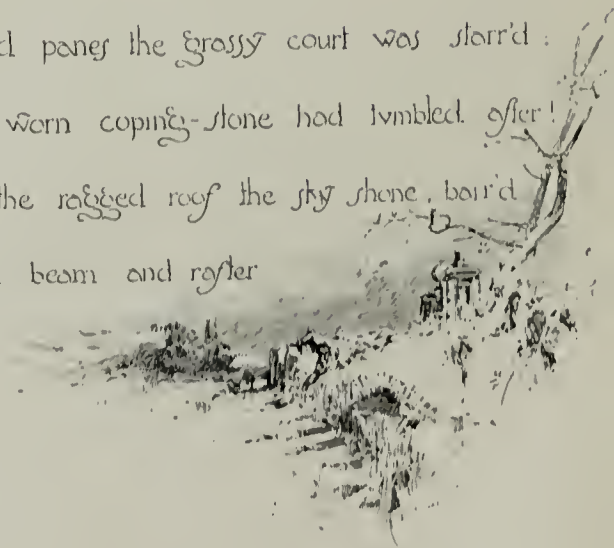 panes the grassy court was starr'd :
worn coping-stone had tumbled after !
the ragged roof the sky shone, barr'd
beam and rafter